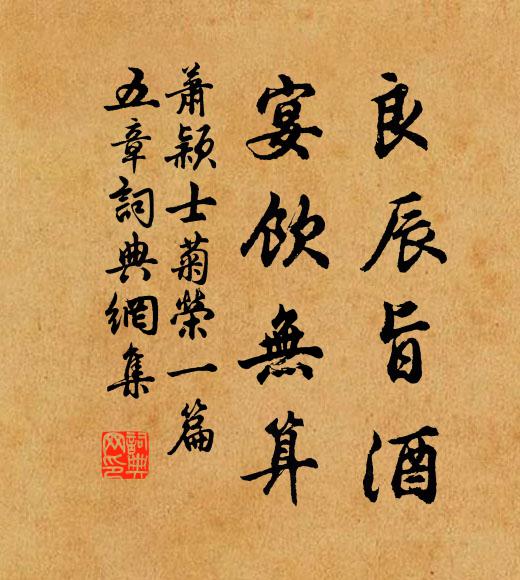 良辰旨酒
宴飲無算
蕭穎士菊榮一篇
五章詞典網集
詞典網印